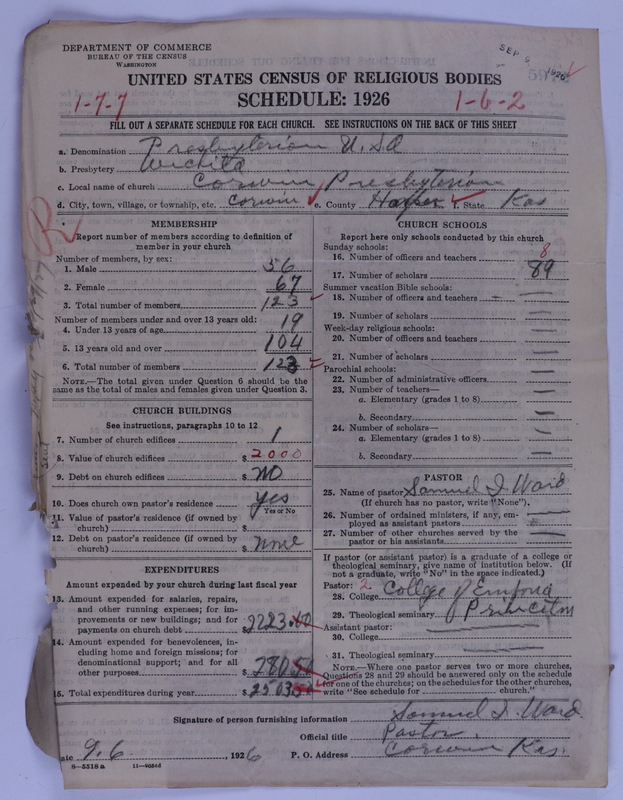 DEPARTMENT OF COMMERCE
BUREAU OF THE CENSUS
WASHINGTON
SEP 9 1926
UNITED STATES CENSUS OF RELIGIOUS BODIES
SCHEDULE: 1926
1-7-7
1-6-2
FILL OUT A SEPARATE SCHEDULE FOR EACH CHURCH. SEE INSTRUCTIONS ON THE BACK OF THIS SHEET
a. Denomination Presbyterian U.S.A
b. Presbytery Wichita
c. Local name of church Corwin Presbyterian
d. City, town, village, or township, etc. Corwin e. County Harper f. State Kas
R
MEMBERSHIP
Report number of members according to definition of member in your church
Number of members, by sex:
1. Male 56
2. Female 67
3. Total number of members 123
Number of members under and over 13 years old:
4. Under 13 years of age 19
5. 13 years old and over 104
6. Total number of members 123
NOTE.—The total given under Question 6 should be the
same as the total of males and females given under Question 3.
CHURCH BUILDINGS
See instructions, paragraphs 10 to 12
7. Number of church edifices 1
8. Value of church edifices $ 2000
9. Debt on church edifices $ No
10. Does church own pastor's residence yes
Yes or No
11. Value of pastor's residence (if owned by
church) $
12. Debt on pastor's residence (if owned by
church) $ none
EXPENDITURES
Amount expended by your church during last fiscal year
13. Amount expended for salaries, repairs,
and other running expenses; for im-
provements or new buildings; and for
payments on church debt $ 2223.
14. Amount expended for benevolences, in-
cluding home and foreign missions; for
denominational support; and for all
other purposes $ 280
15. Total expenditures during year $ 2503
CHURCH SCHOOLS
Report here only schools conducted by this church
Sunday schools:
16. Number of officers and teachers 8
17. Number of scholars 89
Summer vacation Bible schools:
18. Number of officers and teachers —
19. Number of scholars —
Week-day religious schools:
20. Number of officers and teachers —
21. Number of scholars —
Parochial schools:
22. Number of administrative officers —
23. Number of teachers—
a. Elementary (grades 1 to 8) —
b. Secondary —
24. Number of scholars—
a. Elementary (grades 1 to 8) —
b. Secondary —
PASTOR
25. Name of pastor Samuel I. Ward
(If church has no pastor, write "None").
26. Number of ordained ministers, if any, em-
ployed as assistant pastors —
27. Number of other churches served by the
pastor or his assistants —
If pastor (or assistant pastor) is a graduate of a college or
theological seminary, give name of institution below. (If
not a graduate, write "No" in the space indicated.)
Pastor: 2
28. College College of Emporia
29. Theological seminary Princeton
Assistant pastor:
30. College
31. Theological seminary
NOTE.—Where one pastor serves two or more churches,
Questions 28 and 29 should be answered only on the schedule
for one of the churches; on the schedules for the other churches,
write "See schedule for church."
Signature of person furnishing information Samuel I. Ward
Official title Pastor
9.6. 1926 P. O. Address Corwin Kas.
8-5518 a